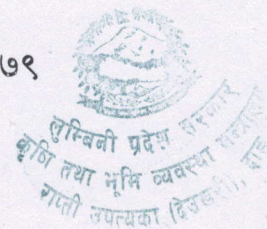 ७९
लुम्बिनी प्रदेश सरकार
कृषि तथा भूमि व्यवस्था मन्त्रालय
राप्ती उपत्यका (देउखुरी),